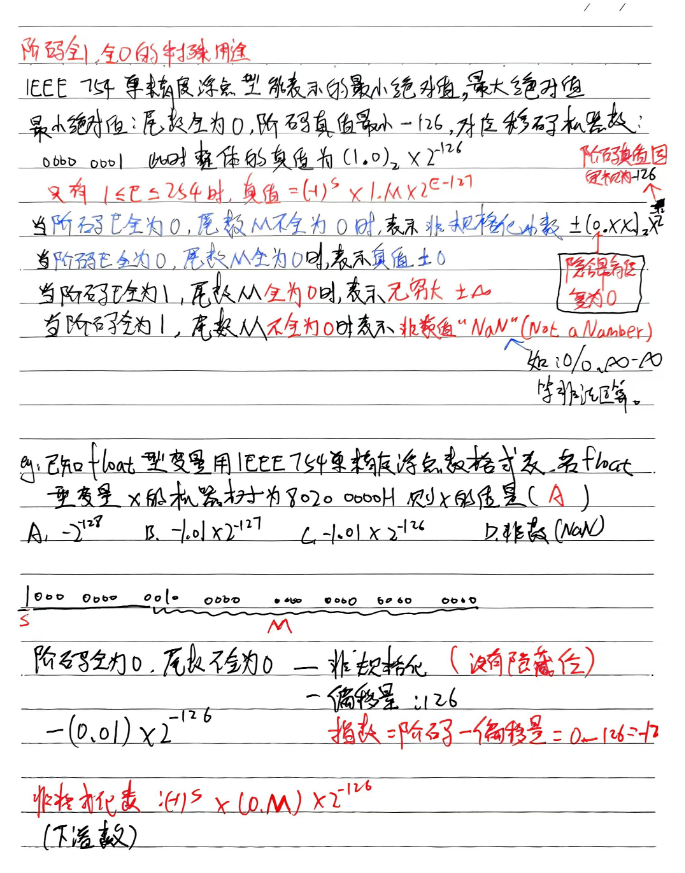 阶码全1、全0的特殊用途
IEEE 754 单精度浮点型能表示的最小绝对值,最大绝对值
最小绝对值:尾数全为0,阶码真值最小-126,对应移码机器数:
0000 0001 此时整体的真值为(1.0)₂×2⁻¹²⁶
阶码真值固
定视为-126
只有 1≤E≤254时,真值=(-1)ˢ×1.M×2ᴱ⁻¹²⁷
当阶码E全为0,尾数M不全为0时,表示非规格化小数 ±(0.XX)₂×2
当阶码E全为0,尾数M全为0时,表示真值±0
隐含最高位
变为0
当阶码E全为1,尾数M全为0时,表示无穷大 ±∞
当阶码全为1,尾数M不全为0时表示非数值"NaN"(Not a Number)
如:0/0、∞-∞
等非法运算。
eg:已知float型变量用IEEE754单精度浮点数格式表,若float
型变量x的机器数为8020 0000H 则x的值是(A)
A. -2⁻¹²⁸ B. -1.01×2⁻¹²⁷ C. -1.01×2⁻¹²⁶ D.非数(NaN)
1000 0000 0010 0000 0000 0000 0000 0000
S M
阶码全为0,尾数不全为0 — 非规格化 (没有隐藏位)
— 偏移量:126
-(0.01)×2⁻¹²⁶ 指数=阶码-偏移量=0-126=-12
非格式化数:(-1)ˢ×(0.M)×2⁻¹²⁶
(下溢数)